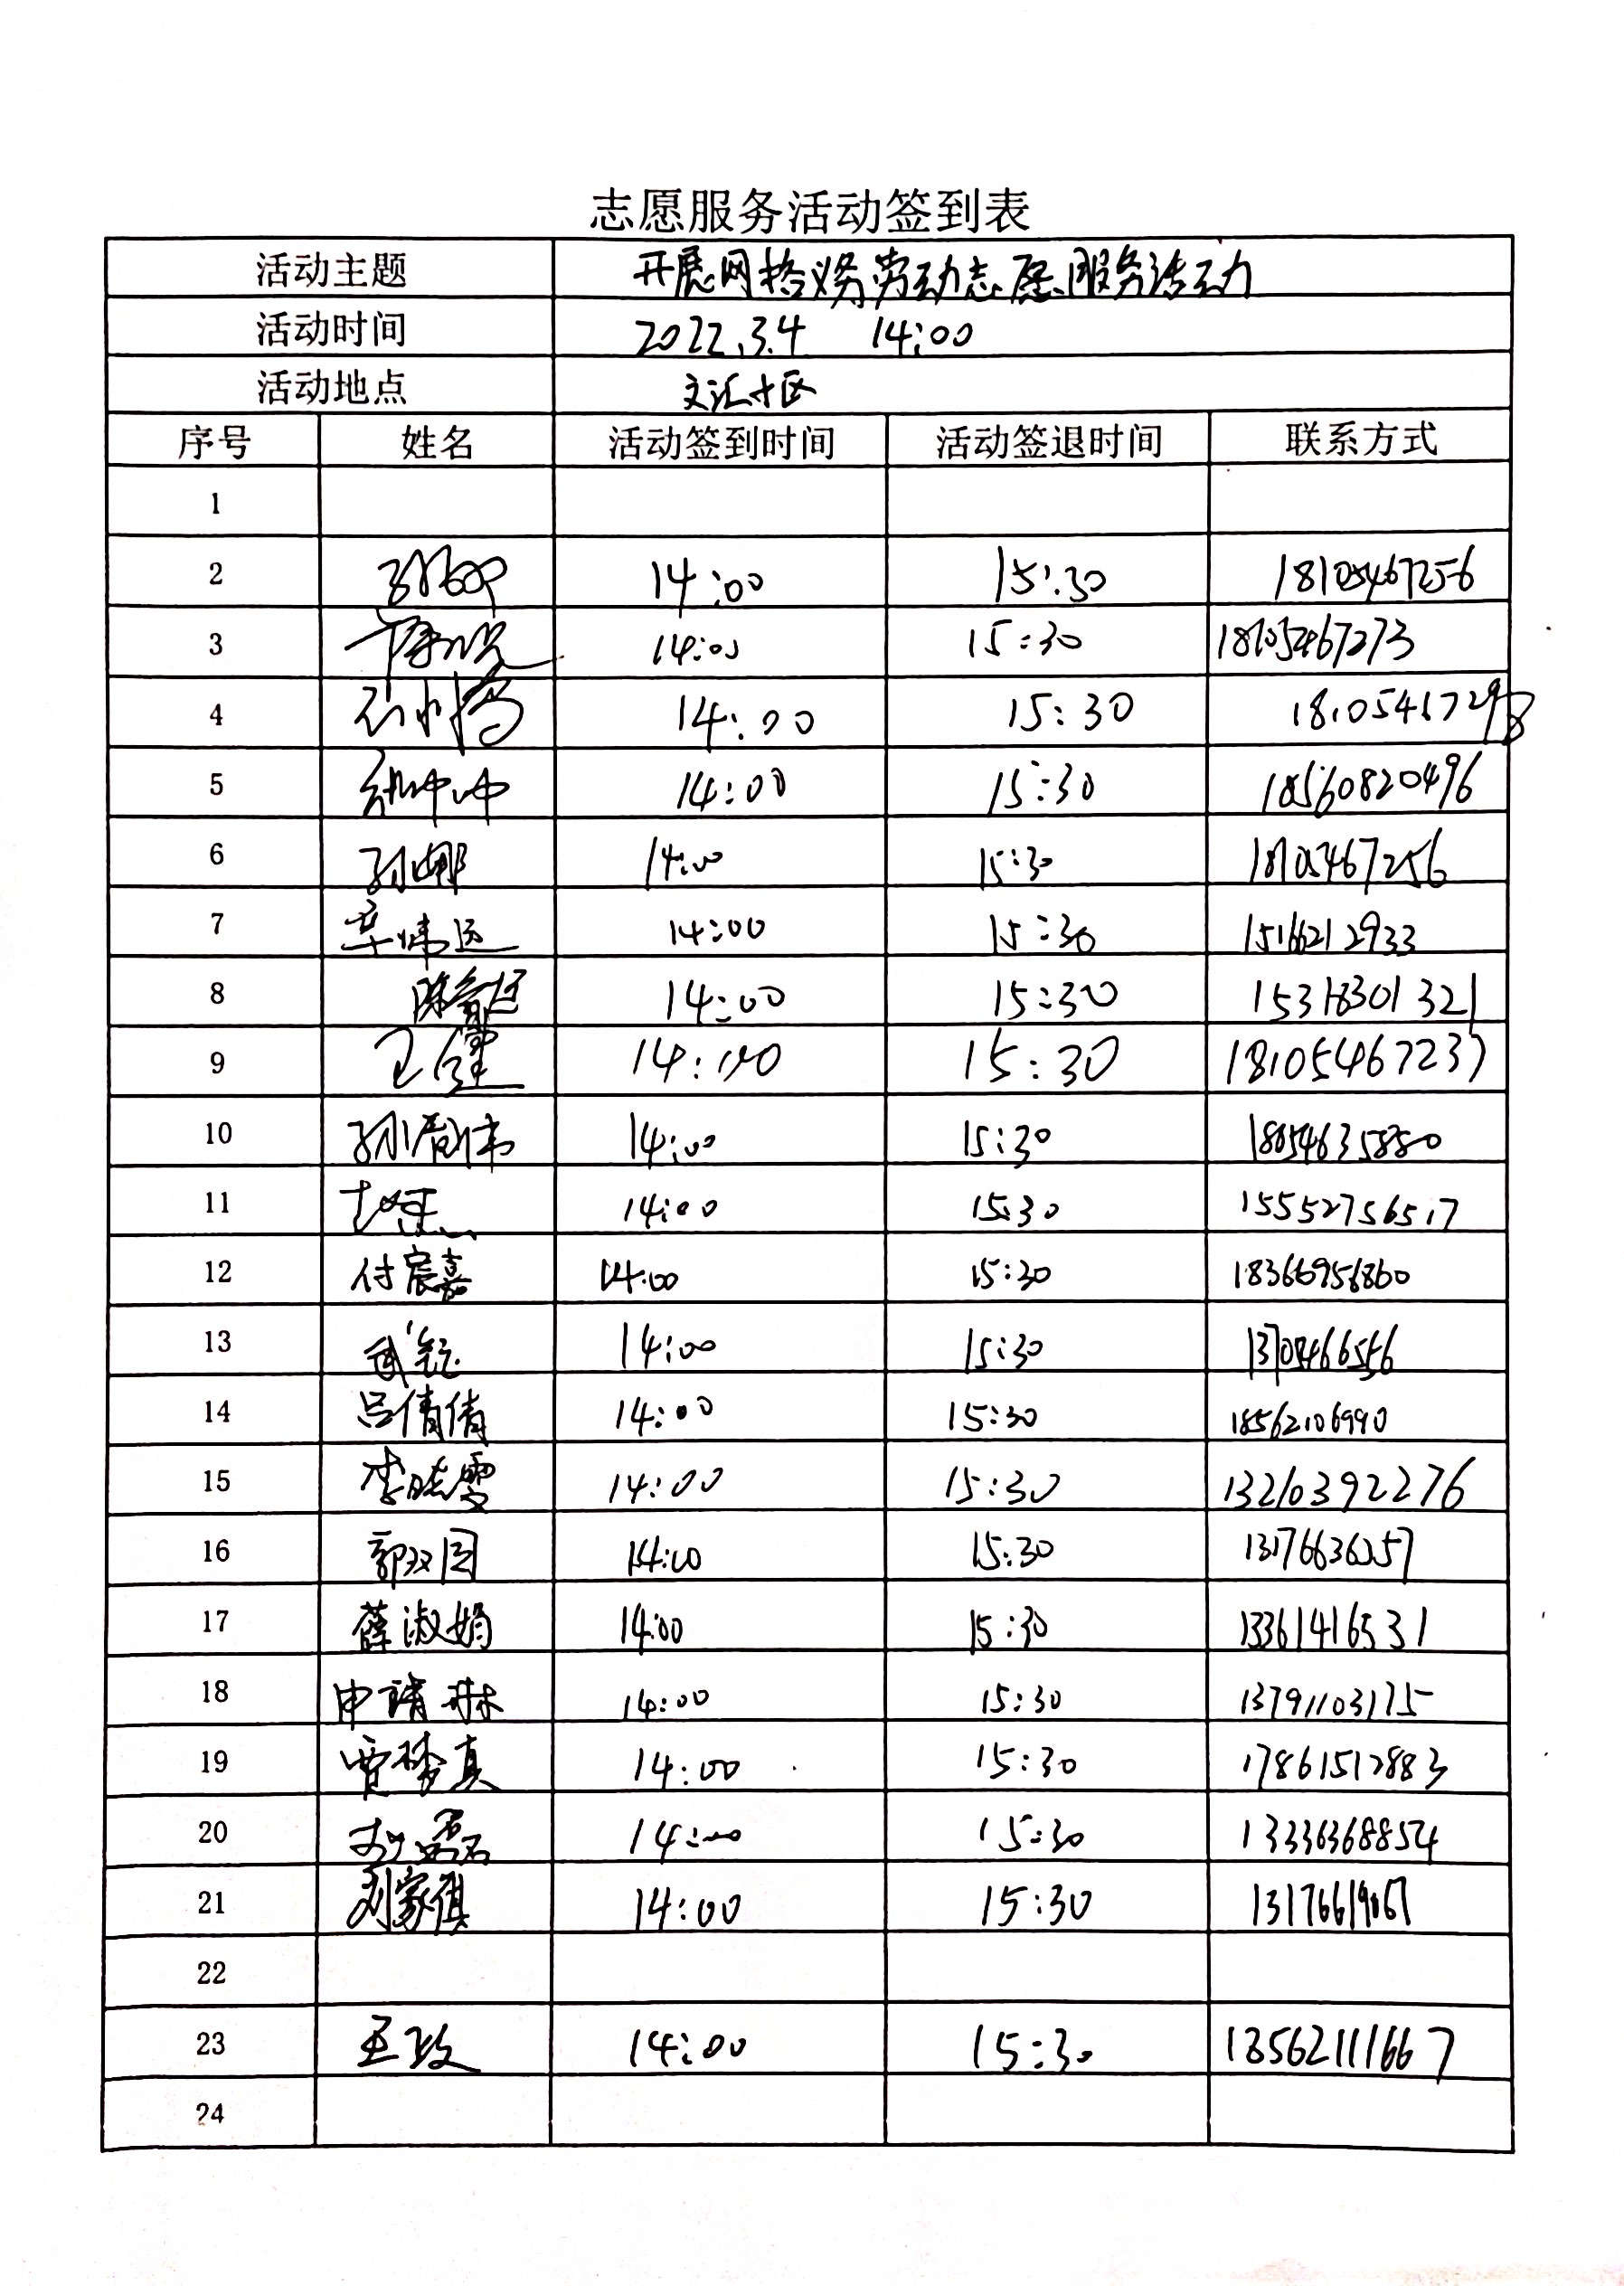 志愿服务活动签到表
活动主题 开展网格义务劳动志愿服务活动
活动时间 2022.3.4 14:00
活动地点 文汇
序号 姓名 活动签到时间 活动签退时间 联系方式
1
2 14:00 15:30 18105467256
3 14:00 15:30 18105467273
4 14:00 15:30 18105467298
5 14:00 15:30 18560820496
6 孙娜 14:00 15:30 18105467256
7 14:00 15:30 15166212933
8 14:00 15:30 15318301321
9 王健 14:00 15:30 18105467237
10 14:00 15:30 18054635880
11 14:00 15:30 15552756517
12 付宸嘉 14:00 15:30 18366956860
13 14:00 15:30
14 吕倩倩 14:00 15:30 18562106990
15 李晓雯 14:00 15:30 13210392276
16 14:00 15:30
17 薛淑娟 14:00 15:30 13361416531
18 申靖琳 14:00 15:30 13791103175
19 贾梦真 14:00 15:30 17861512883
20 14:00 15:30 13336368854
21 刘家祺 14:00 15:30
22
23 王政 14:00 15:30 13562111667
24